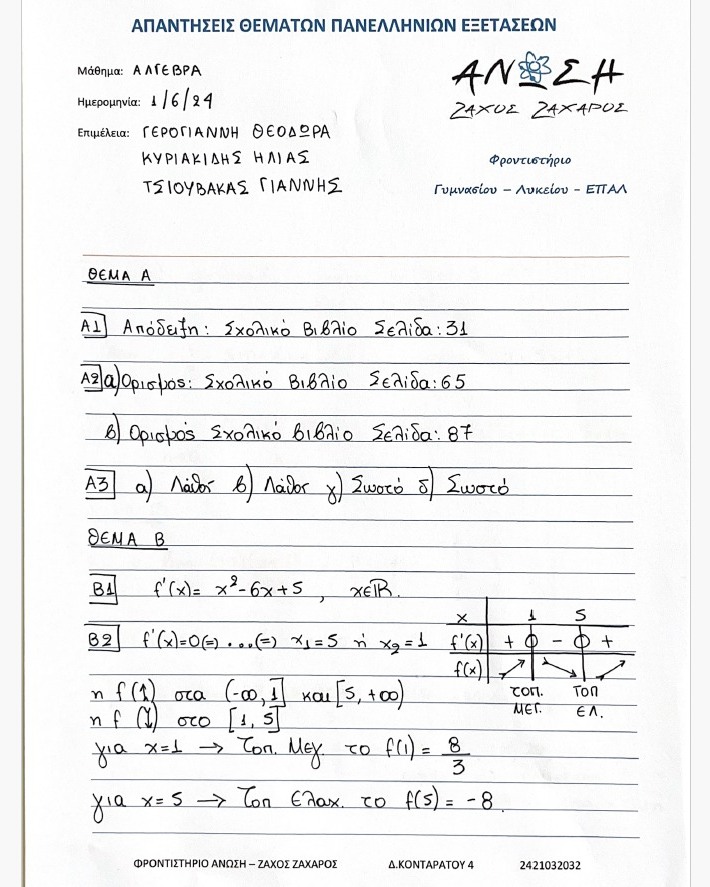 ΑΠΑΝΤΗΣΕΙΣ ΘΕΜΑΤΩΝ ΠΑΝΕΛΛΗΝΙΩΝ ΕΞΕΤΑΣΕΩΝ
Μάθημα: ΑΛΓΕΒΡΑ
Ημερομηνία: 1/6/24
Επιμέλεια: ΓΕΡΟΓΙΑΝΝΗ ΘΕΟΔΩΡΑ
ΚΥΡΙΑΚΙΔΗΣ ΗΛΙΑΣ
ΤΣΙΟΥΒΑΚΑΣ ΓΙΑΝΝΗΣ
ΑΝΩΣΗ
ΖΑΧΟΣ ΖΑΧΑΡΟΣ
Φροντιστήριο
Γυμνασίου – Λυκείου - ΕΠΑΛ
ΘΕΜΑ Α
Α1 Απόδειξη: Σχολικό Βιβλίο Σελίδα: 31
Α2 α) Ορισμός: Σχολικό Βιβλίο Σελίδα: 65
β) Ορισμός Σχολικό Βιβλίο Σελίδα: 87
Α3 α) Λάθος β) Λάθος γ) Σωστό δ) Σωστό
ΘΕΜΑ Β
Β1 f'(x)= x²-6x+5 , x∈ℝ.
Β2 f'(x)=0(=) ...(=) x₁=5 ή x₂=1
x 1 5
f'(x) + 0 - 0 +
f(x) ↗ ↘ ↗
ΤΟΠ. ΤΟΠ
ΜΕΓ. ΕΛ.
η f (↑) στα (-∞, 1] και [5, +∞)
η f (↓) στο [1, 5]
για x=1 → Τοπ. Μεγ. το f(1) = 8/3
για x=5 → Τοπ Ελαχ. το f(5) = -8.
ΦΡΟΝΤΙΣΤΗΡΙΟ ΑΝΩΣΗ – ΖΑΧΟΣ ΖΑΧΑΡΟΣ Δ.ΚΟΝΤΑΡΑΤΟΥ 4 2421032032